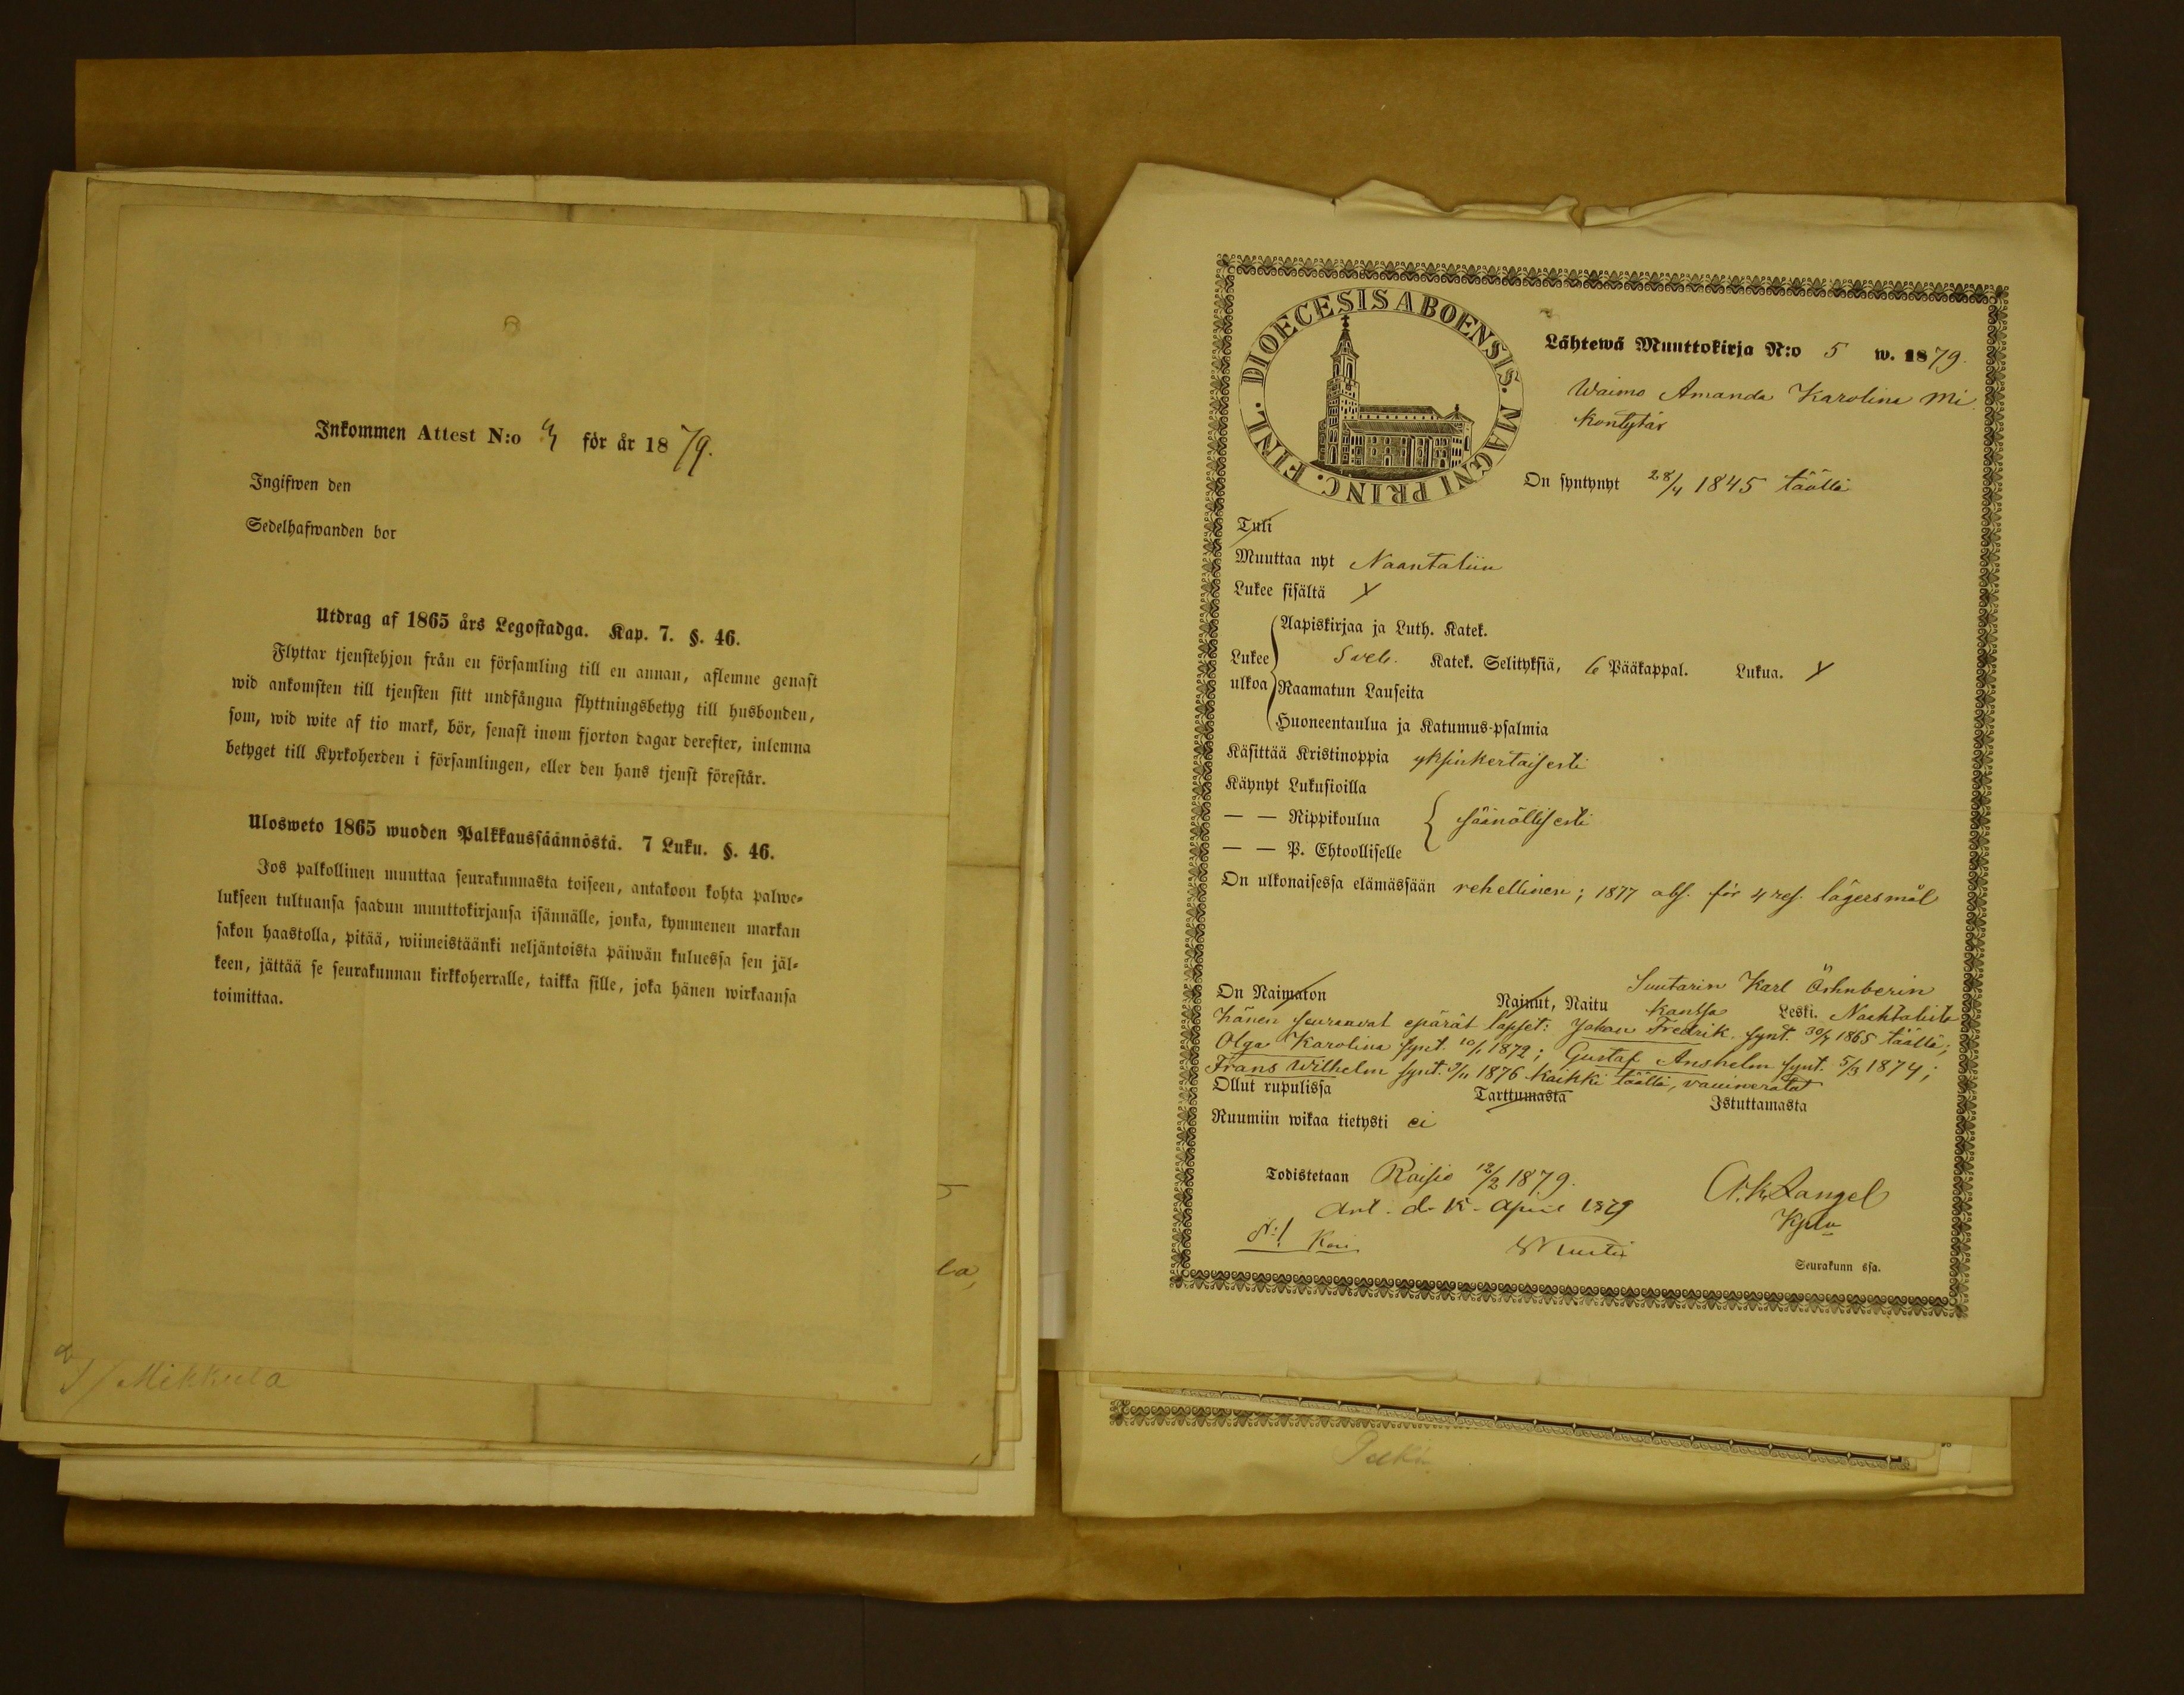 Inkommen Attest N:o 9 för år 1879.
Ingifwen den
Sedelhafwanden bor
Utdrag af 1865 års Legostadga. Kap. 7. §. 46.
Flyttar tjenstehjon från en församling till en annan, aflemne genast
wid ankomsten till tjensten sitt undfångna flyttningsbetyg till husbonden,
som, wid wite af tio mark, bör, senast inom fjorton dagar derefter, inlemna
betyget till Kyrkoherden i församlingen, eller den hans tjenst förestår.
Ulosweto 1865 wuoden Palkkaussäännöstä. 7 Luku. §. 46.
Jos palkollinen muuttaa seurakunnasta toiseen, antakoon kohta palwe-
lukseen tultuansa saadun muuttokirjansa isännälle, jonka, kymmenen markan
sakon haastolla, pitää, wiimeistäänki neljäntoista päiwän kuluessa sen jäl-
keen, jättää se seurakunnan kirkkoherralle, taikka sille, joka hänen wirkaansa
toimittaa.
la,
Mikkula
DIOECESIS ABOENSIS. MAGNI PRINC. FINL.
Lähtewä Muuttokirja N:o 5 w. 1879.
Waimo Amanda Karolina Mi
kontytär
On syntynyt 28/4 1845 täällä
Tuli
Muuttaa nyt Naantaliin
Lukee sisältä
Aapiskirjaa ja Luth. Katek.
Lukee Sveb. Katek. Selityksiä, 6 Pääkappal. Lukua.
ulkoa Raamatun Lauseita
Huoneentaulua ja Katumus-psalmia
Käsittää Kristinoppia yksinkertaisesti
Käynyt Lukusioilla
— — Rippikoulua säänöllisesti
— — P. Ehtoolliselle
On ulkonaisessa elämässään rehellinen; 1877 abs. för 4 res. lägersmål
Suutarin Karl Öhnberin
On Naimaton Nainut, Naitu kanssa Leski. Naantalista
Hänen seuraavat epärät lapset: Johan Fredrik synt. 30/7 1865 täällä;
Olga Karolina synt. 10/1 1872; Gustaf Anshelm synt. 5/3 1874;
Frans Wilhelm synt. 1876 kaikki täällä,
Ollut rupulissa Tarttumasta Istuttamasta
Ruumiin wikaa tietysti ei
Todistetaan Raisio 12/2 1879.
A. K. Langel
Ant. d. 15 April 1879
N:1
Seurakunn ssa.